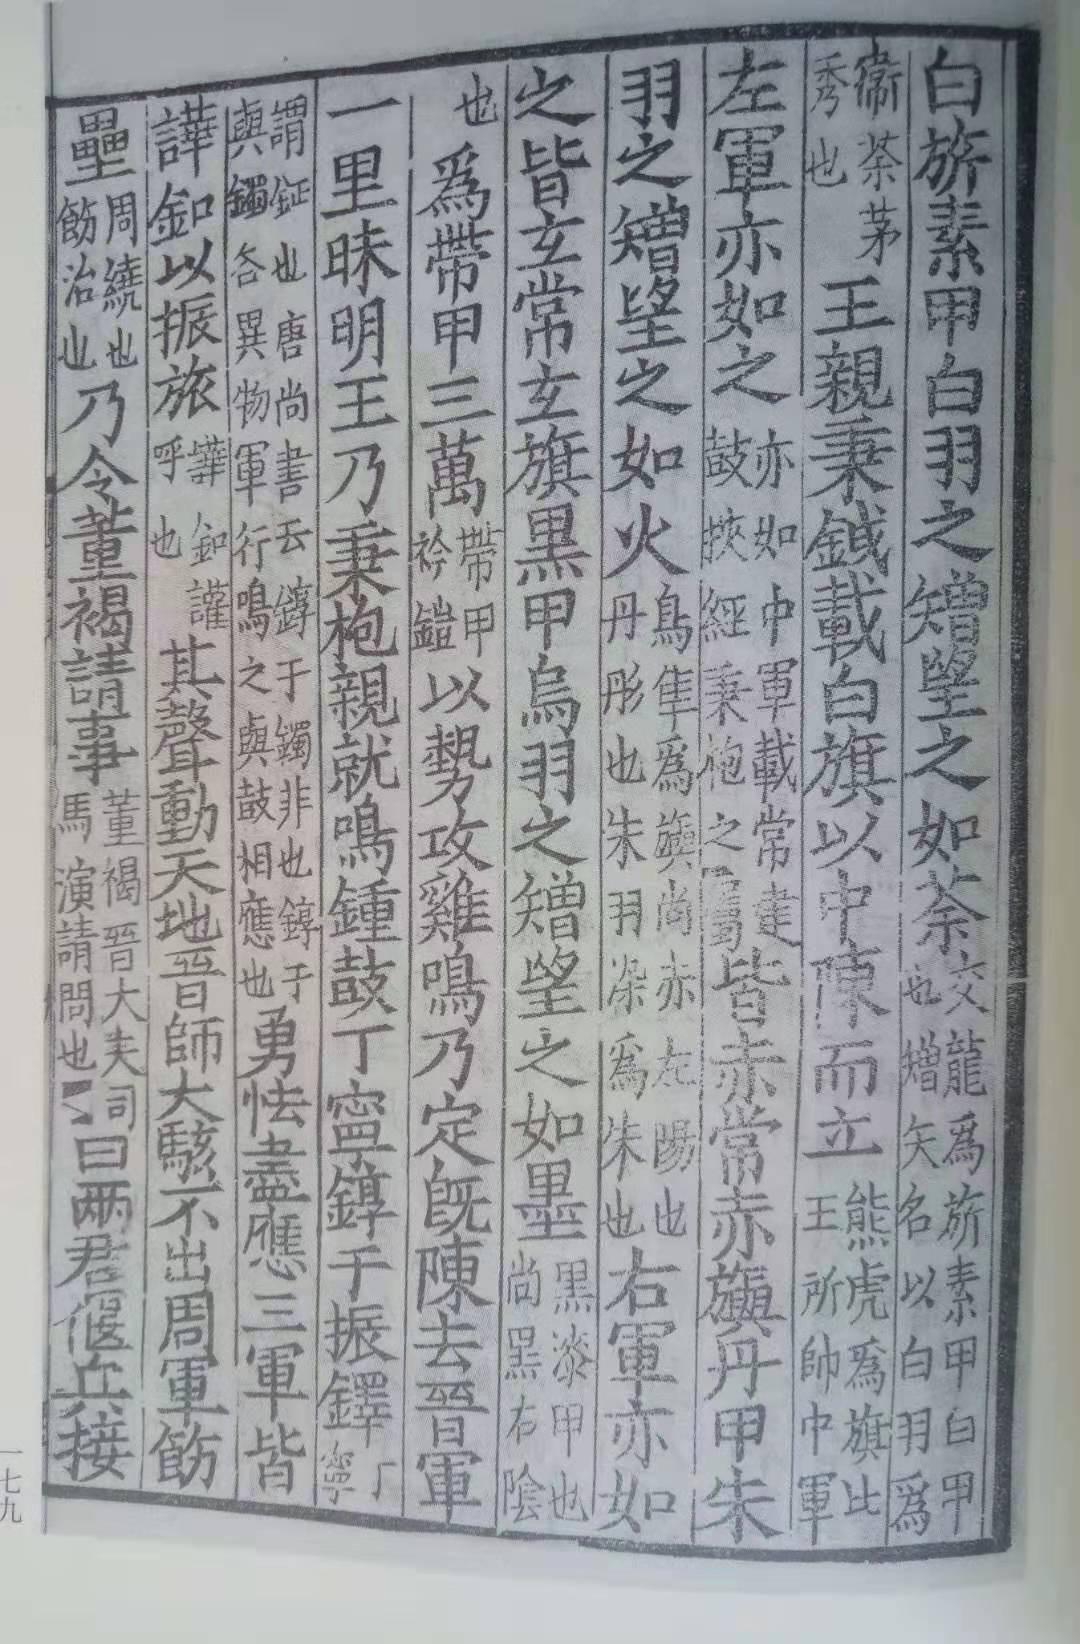 白旂素甲白羽之矰望之如荼交龍爲旂素甲白甲也矰矢名以白羽爲
衞荼茅秀也王親秉鉞載白旗以中陳而立熊虎爲旗此王所帥中軍
左軍亦如之亦如中軍載常建鼓挾經秉枹之屬皆赤常赤旟丹甲朱
羽之矰望之如火鳥隼爲旟尚赤左陽也丹彤也朱羽染爲朱也右軍亦如
之皆玄常玄旗黑甲烏羽之矰望之如墨黑漆甲也尚黑右陰
也爲帶甲三萬帶甲衿鎧以勢攻雞鳴乃定既陳去晉軍
一里昧明王乃秉枹親就鳴鍾鼓丁寧錞于振鐸丁寧
謂鉦也唐尚書云錞于鐲非也錞于與鐲各異物軍行鳴之與鼓相應也勇怯盡應三軍皆
譁釦以振旅譁釦讙呼也其聲動天地晉師大駭不出周軍飭
壘周繞也飭治也乃令董褐請事董褐晉大夫司馬演請問也曰兩君偃兵接
一七九